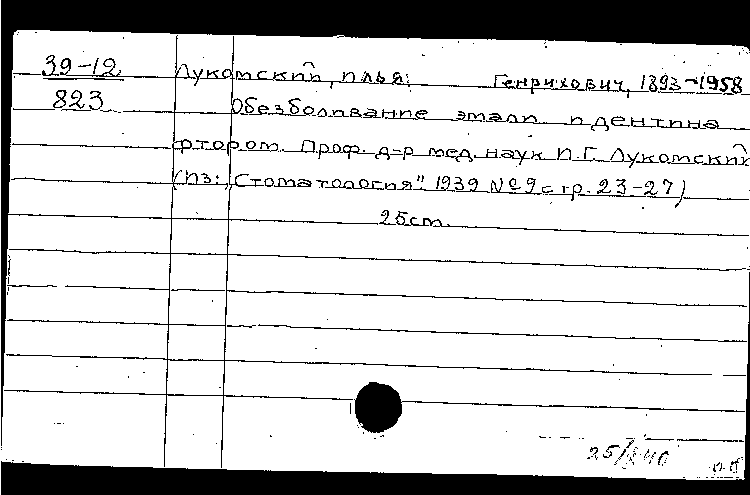 39-12
823
Лукомский, Илья Генрихович, 1893-1958
Обезболивание эмали и дентина
фтором. Проф. д-р мед. наук И.Г. Лукомский
(Из: „Стоматология". 1939 №9 стр. 23-27)
25cm.